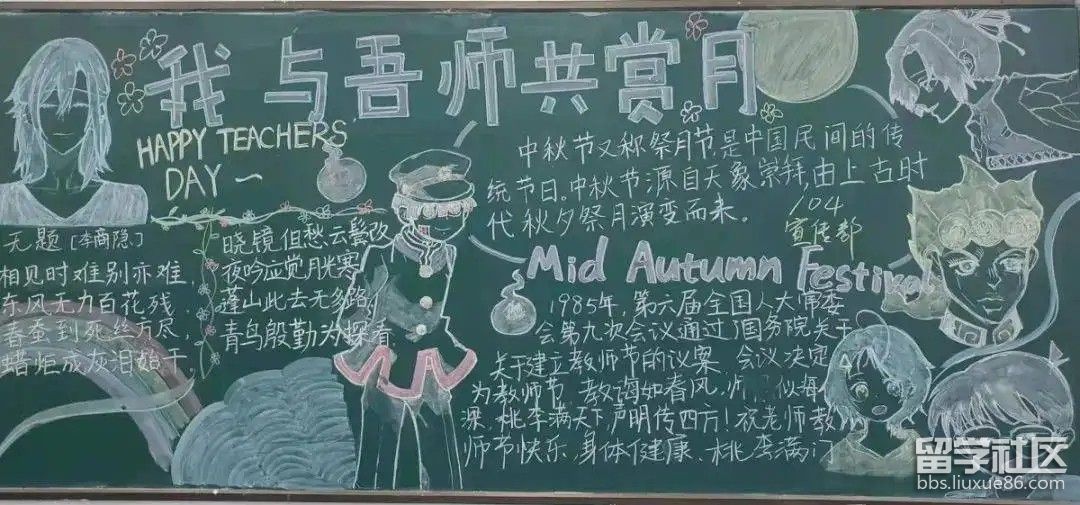 我与吾师共赏月
HAPPY TEACHERS
DAY～
无题[李商隐]
相见时难别亦难，
东风无力百花残.
春蚕到死丝方尽，
蜡炬成灰泪始干.
晓镜但愁云鬓改
夜吟应觉月光寒
蓬山此去无多路
青鸟殷勤为探看
中秋节又称祭月节,是中国民间的传
统节日.中秋节源自天象崇拜,由上古时
代秋夕祭月演变而来。
104
宣传部
Mid Autumn Festival
1985年,第六届全国人大常委
会第九次会议通过了国务院关于
关于建立教师节的议案.会议决定
为教师节.教诲如春风,师 似海
深.桃李满天下,声明传四方!祝老师教
师节快乐、身体健康、桃李满门
留学社区
bbs.liuxue86.com